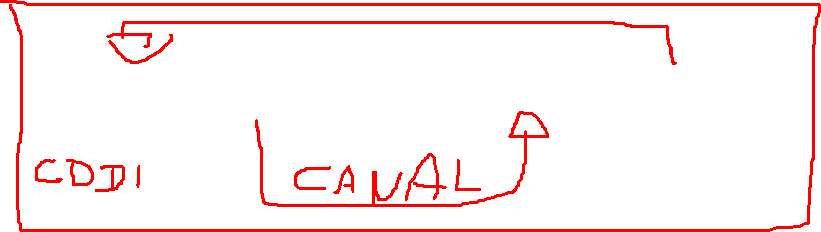 CDDI CANAL